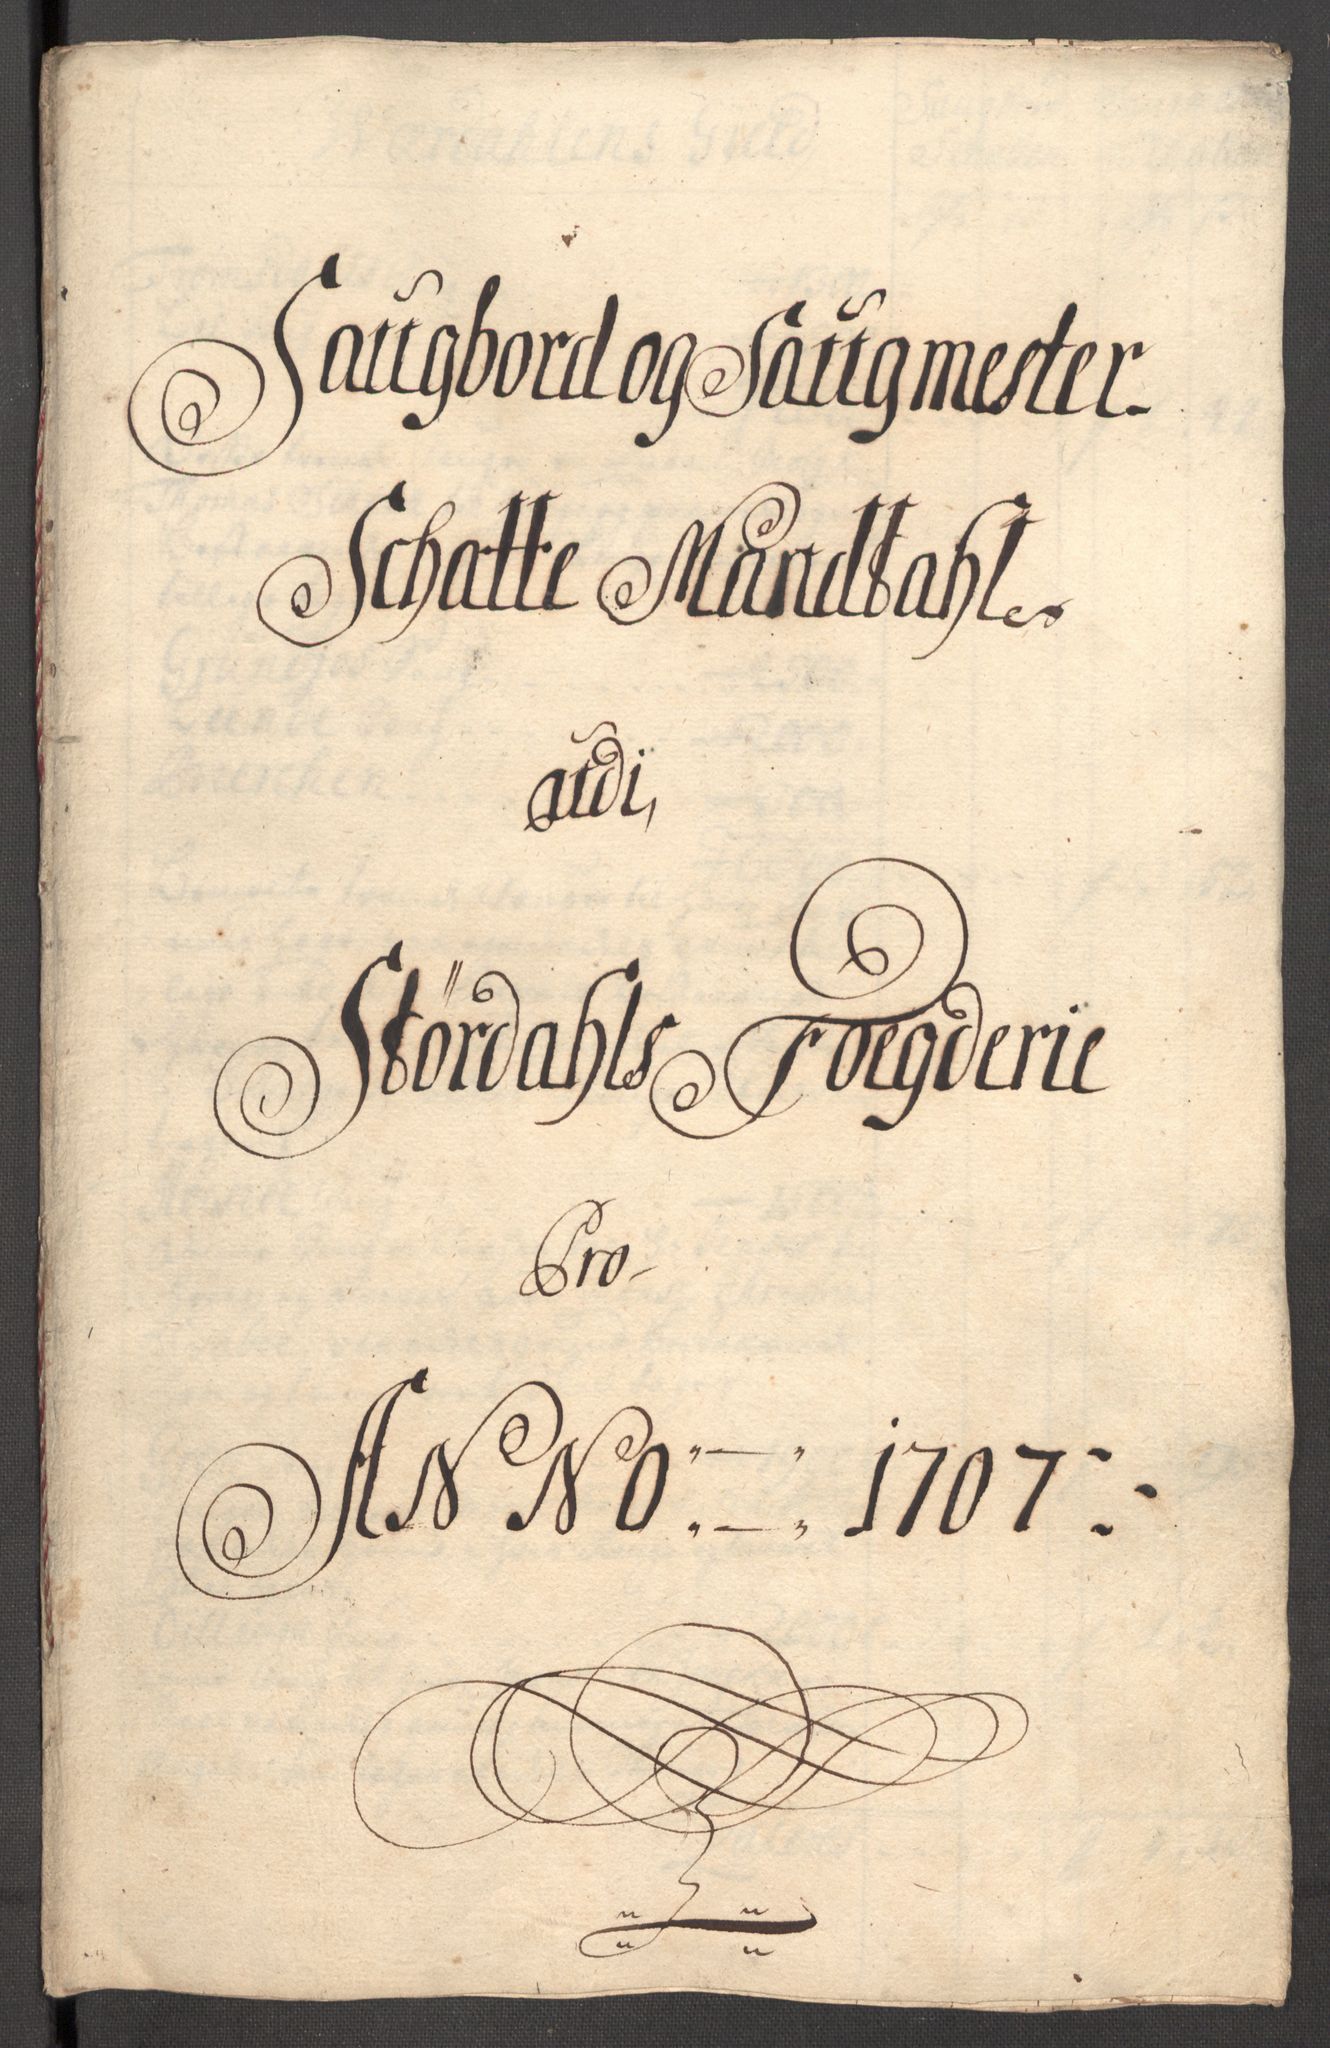 Saugbord og Saugmester
Schatte Mandtahl
udi
Stördahls Foegderie
Pro
ANNO 1707